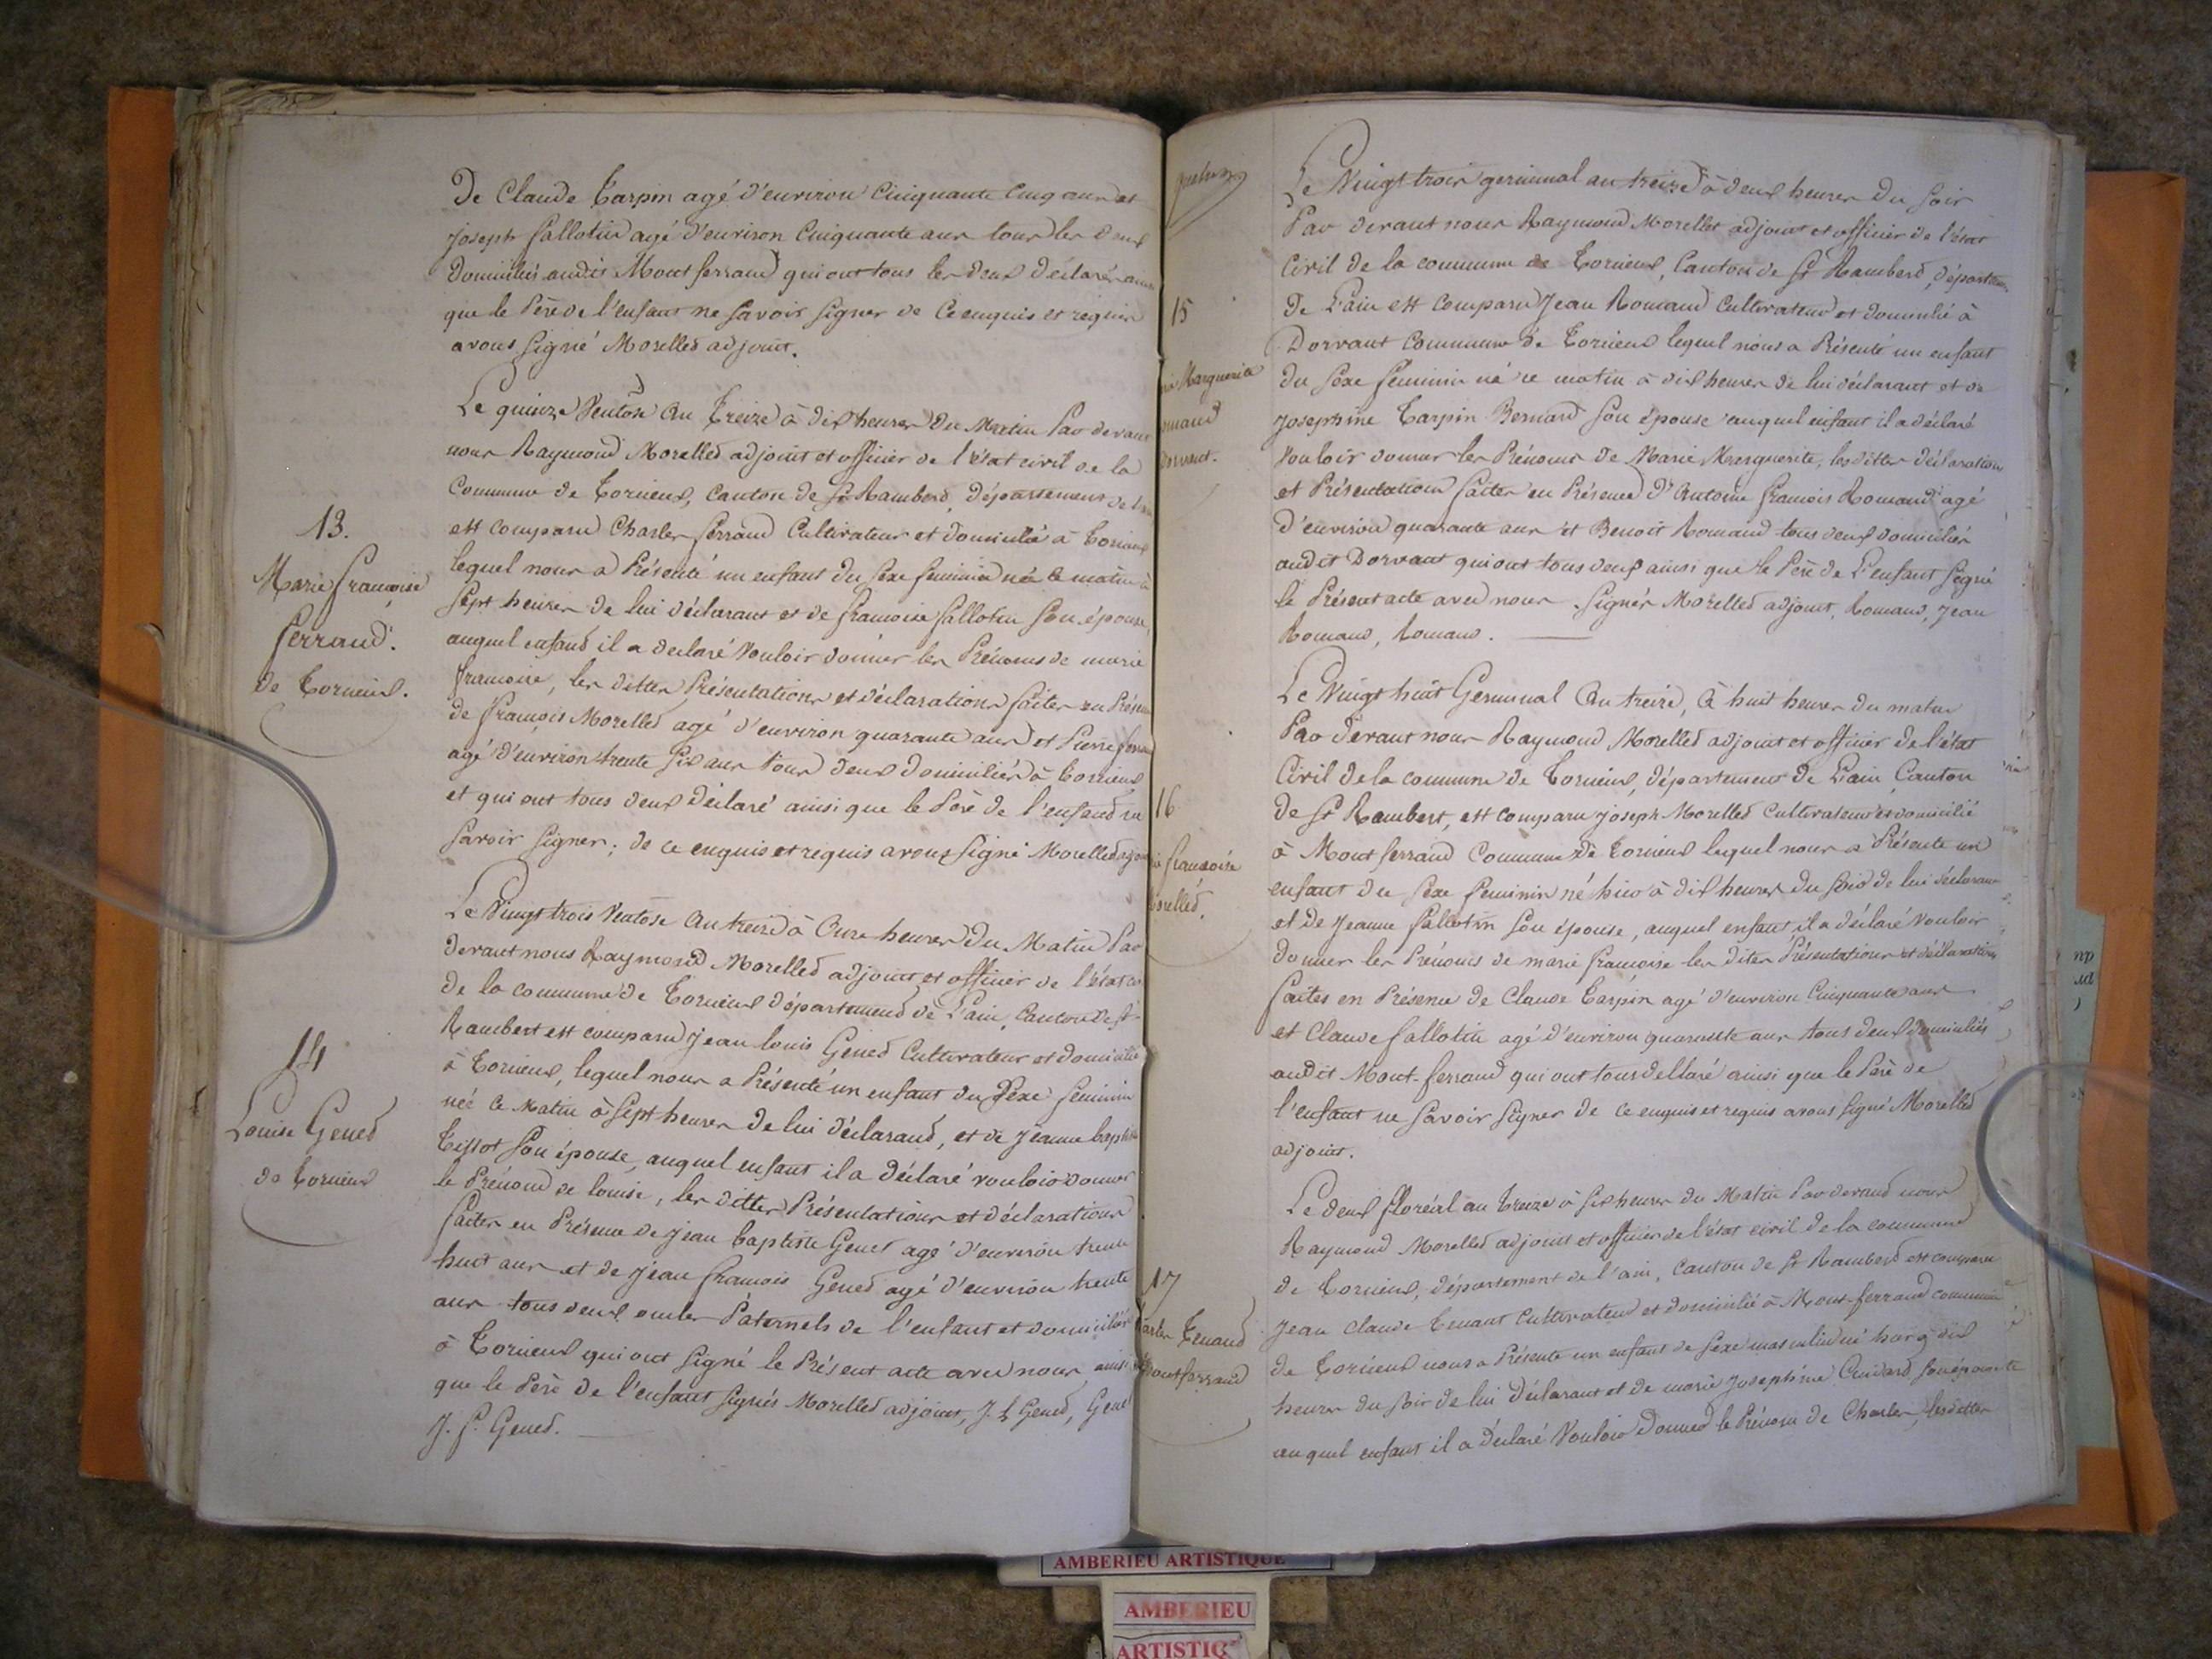 De Claude Tarpin agé d'environ Cinquante Cinq ans et
Joseph fallotin agé d'environ Cinquante ans tous les deux
Domiciliés audit Mont ferrand qui ont tous les deux déclaré
que le Père de l'enfant ne savoir signer de ce enquis et requis
avons signé Morelled adjoint.
Le quinze Ventôse an Treize à dix heures du Matin Par devant
nous Raymond Morelled adjoint et officier de l'état civil de la
Commune de Torcieux, canton de St Rambert, département de
est comparu Charles ferrand Cultivateur et domicilié à Torcieux
lequel nous a Présenté un enfant du sexe feminin né le matin à
sept heures de lui déclarant et de francoise fallotin son épouse,
auquel enfand il a declaré Vouloir donner les Prénoms de marie
francoise, les dittes Présentations et déclarations faites en Présence
de françois Morelled agé d'environ quarante ans et Pierre
agé d'environ trente six ans tous deux domiciliés à Torcieux
et qui ont tous deux déclaré ainsi que le Père de l'enfand ne
savoir signer; de ce enquis et requis avons signé Morelled
13.
Marie francoise
ferrand.
de Torcieux.
Le Vingt trois Ventose an treize à Onze heures du Matin Par
devant nous Raymond Morelled adjoint et officier de l'état
de la commune de Torcieux département de L'ain, Canton de St
Rambert est comparu Jean louis Gened Cultivateur et domicilié
à Torcieux, lequel nous a Présenté un enfant du Sexe feminin
née ce Matin à sept heures de lui déclarand, et de Jeanne
Tissot son épouse, auquel enfant il a déclaré vouloir donner
le Prénom de louise, les dittes Présentations et déclarations
faites en Présence de Jean baptiste Genet agé d'environ trente
huit ans et de Jean francois Gened agé d'environ trente
ans tous deux oncles Paternels de l'enfant et domiciliés
à Torcieux qui ont signé le Présent acte avec nous ainsi
que le Père de l'enfant signés Morelled adjoint, J. L Gened, Gened
J. f. Gened.
14
Louise Gened
de Torcieux
Le Vingt trois germinal an treize à deux heures du soir
Par devant nous Raymond Morellet adjoint et officier de l'état
Civil de la commune de Torcieux, Canton de St Rambert, département
de L'ain est comparu Jean Romand Cultivateur et domicilié à
Dorvant Commune de Torcieux lequel nous a Présenté un enfant
du Sexe feminin né ce matin à dix heures de lui déclarant et de
Josephine Tarpin Bernard son épouse auquel enfant il a déclaré
Vouloir donner les Prénoms de Marie Marguerite, les dittes déclaration
et Présentation faites en Présence d'Antoine francois Romand agé
d'environ quarante ans et Benoit Romand tous deux domiciliés
audit Dorvant qui ont tous deux ainsi que le Père de L'enfant signé
le Présent acte avec nous. Signés Morelled adjoint, Romand, Jean
Romand, Romand.
15
Marguerite
Le Vingt huit Germinal An treize, à huit heures du matin
Par devant nous Raymond Morelled adjoint et officier de l'état
Civil de la commune de Torcieux, département de L'ain Canton
de St Rambert, est comparu Joseph Morelled Cultivateur et domicilié
à Mont ferrand Commune de Torcieux lequel nous a Présenté un
enfant du Sexe feminin né hier à dix heures du soir de lui déclarant
et de Jeanne fallotin son épouse, auquel enfant il a déclaré Vouloir
donner les Prénoms de marie francoise les dites Présentations et déclarations
faites en Présence de Claude Tarpin agé d'environ Cinquante ans
et Claude fallotin agé d'environ quarante ans tous deux domiciliés
audit Mont-ferrand qui ont tous dellaré ainsi que le Père de
l'enfant ne savoir signer de ce enquis et requis avons signé Morelled
adjoint.
16
francoise
Morelled.
Le deux floréal an Treize à six heures du Matin Par devand nous
Raymond Morelled adjoint et officier de l'état civil de la commune
de Torcieux, département de l'ain, Canton de St Rambert est comparu
Jean Claude Tenant Cultivateur et domicilié à Mont-ferrand commune
de Torcieux nous a Présenté un enfant de sexe masculin né hier à dix
heures du soir de lui déclarant et de marie Josephine son épouse
auquel enfant il a déclaré Vouloir Donner le Prénom de Charles, les dittes
17
Tenand
Montferrand
AMBERIEU ARTISTIQUE
AMBERIEU
ARTISTIQ